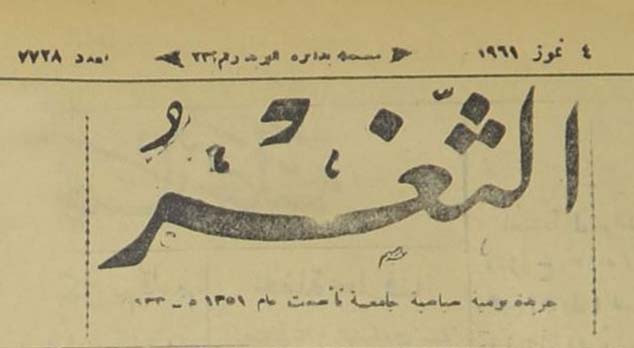 ٤ تموز ١٩٦١ مسجلة بدائرة البريد رقم ٢٣ العدد ٧٧٢٨
الثغر
جريدة يومية صباحية جامعة تأسست عام ١٣٥١ هـ ٩٣٣